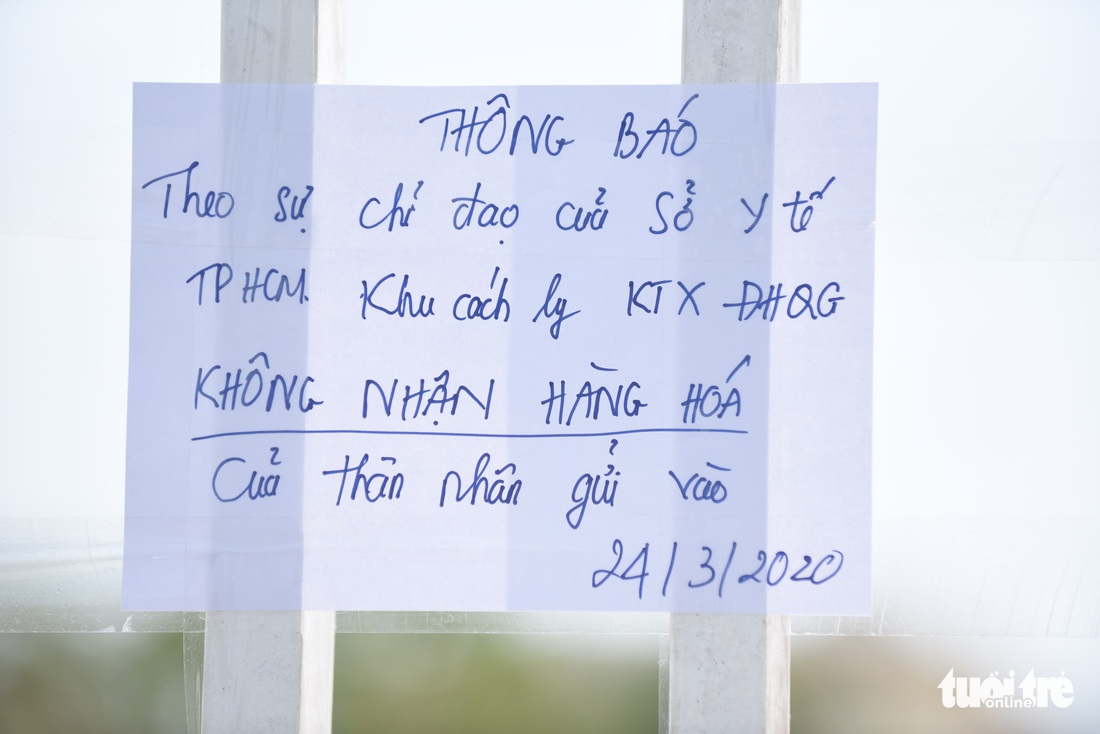 THÔNG BÁO
Theo sự chỉ đạo của Sở Y tế
TP HCM. Khu cách ly KTX ĐHQG
KHÔNG NHẬN HÀNG HOÁ
Của thân nhân gửi vào
24/3/2020
tuổi trẻ
online